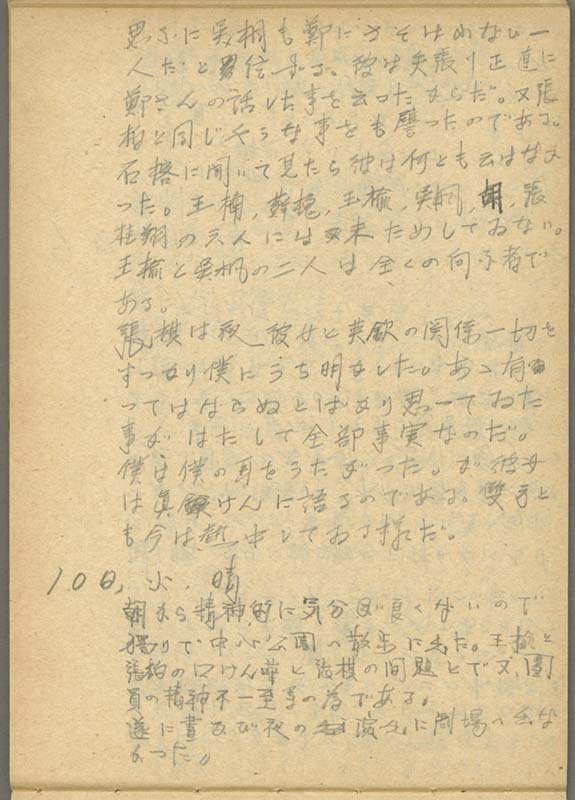 思ふに吳桐も鄭にさそはれない一
人だと信ずる。彼は矢張り正直に
鄭さんの話した事を云つたからだ。又張
柏と同じやうな事をも譬つたのである。
石榕に聞いて見たら彼は何とも云はなか
つた。王楠,蘇槐,王楡,吳楓,胡,張
桂翔の六人には未ためしてゐない。
王楡と吳楓の二人は全くの同志者で
ある。
張棋は夜彼女と英欽の関係一切を
すつかり僕にうち明かした。あゝ有
つてはならぬとばかり思つてゐた
事がはたして全部事実なのだ。
僕は僕の耳をうたがつた。が彼女
は真けんに語るのである。双方と
も今は熱中しておる様だ。
10日,火.晴
朝から精神的に気分が良くないので
独りで中山公園へ散歩に行た。王楡と
張柏の口けん嘩と張棋の問題とで又,團
員の精神不一至の為である。
遂に昼及び夜の演に劇場へ行な
かつた。